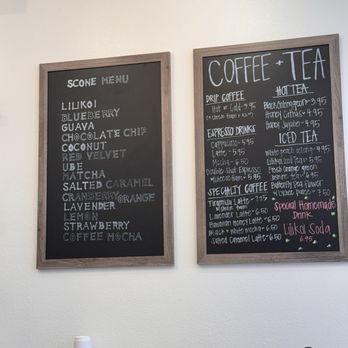 SCONE MENU
LILIKOI
BLUEBERRY
GUAVA
CHOCOLATE CHIP
COCONUT
RED VELVET
UBE
MATCHA
SALTED CARAMEL
CRANBERRY ORANGE
LAVENDER
LEMON
STRAWBERRY
COFFEE MOCHA
COFFEE + TEA
DRIP COFFEE
Hot or Cold - 3.95
ESPRESSO DRINKS
Cappuccino -
Latte - 5.95
Mocha - 6.50
Double Shot Espresso
SPECIALTY COFFEE
Tiramisu Latte - 7.75
Lavender Latte - 6.50
Hawaiian Honey Latte - 6.50
Black + White Mocha - 6.50
Salted Caramel Latte - 6.50
HOT TEA
Honey Citrus - 4.95
ICED TEA
Butterfly Pea Flower
Special Homemade
Drink
Lilikoi Soda
6.95